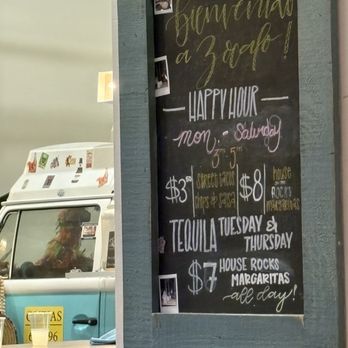 Bienvenido
a Zocalo!
HAPPY HOUR
mon - Saturday
$3 street tacos
chips & salsa
$8 house
on the
ROCKS
margaritas
TEQUILA TUESDAY &
THURSDAY
$7 HOUSE ROCKS
MARGARITAS
all day!